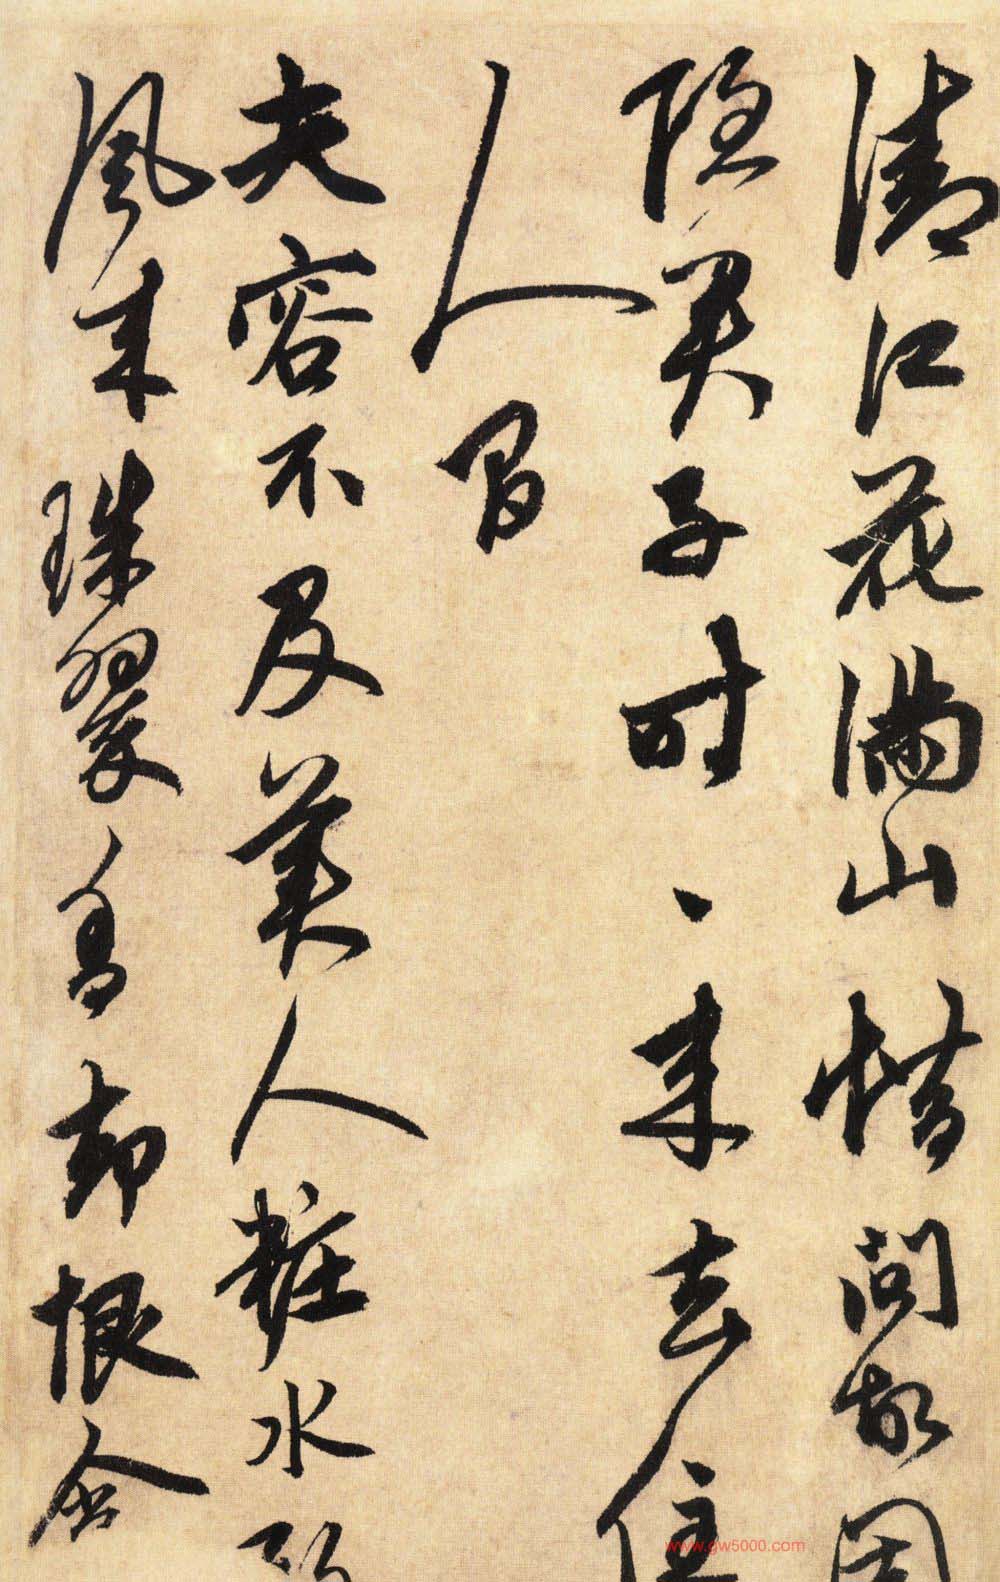 清江花滿山惜問故園
隱君子時、来去住
人間
夫容不及美人粧水殿
風来珠翠香却恨含
www.gw5000.com